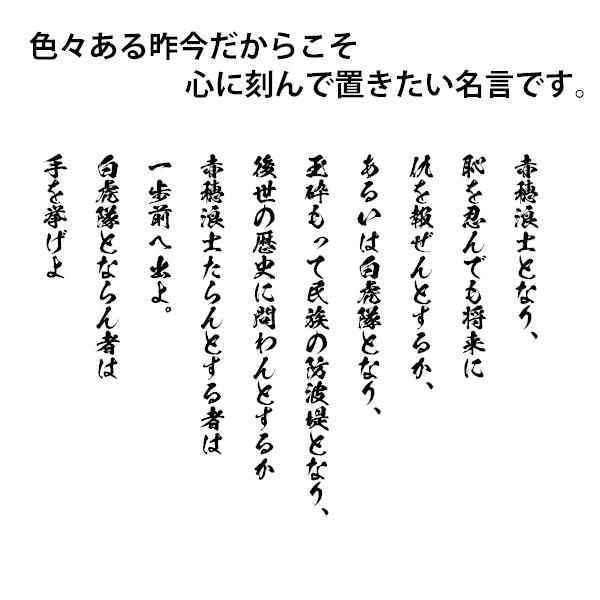 色々ある昨今だからこそ
心に刻んで置きたい名言です。
赤穂浪士となり、
恥を忍んでも将来に
仇を報ぜんとするか、
あるいは白虎隊となり、
玉砕もって民族の防波堤となり、
後世の歴史に問わんとするか
赤穂浪士たらんとする者は
一歩前へ出よ。
白虎隊とならん者は
手を挙げよ